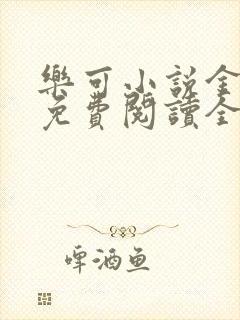 樂可小説全
免費閱讀全
啤酒鱼